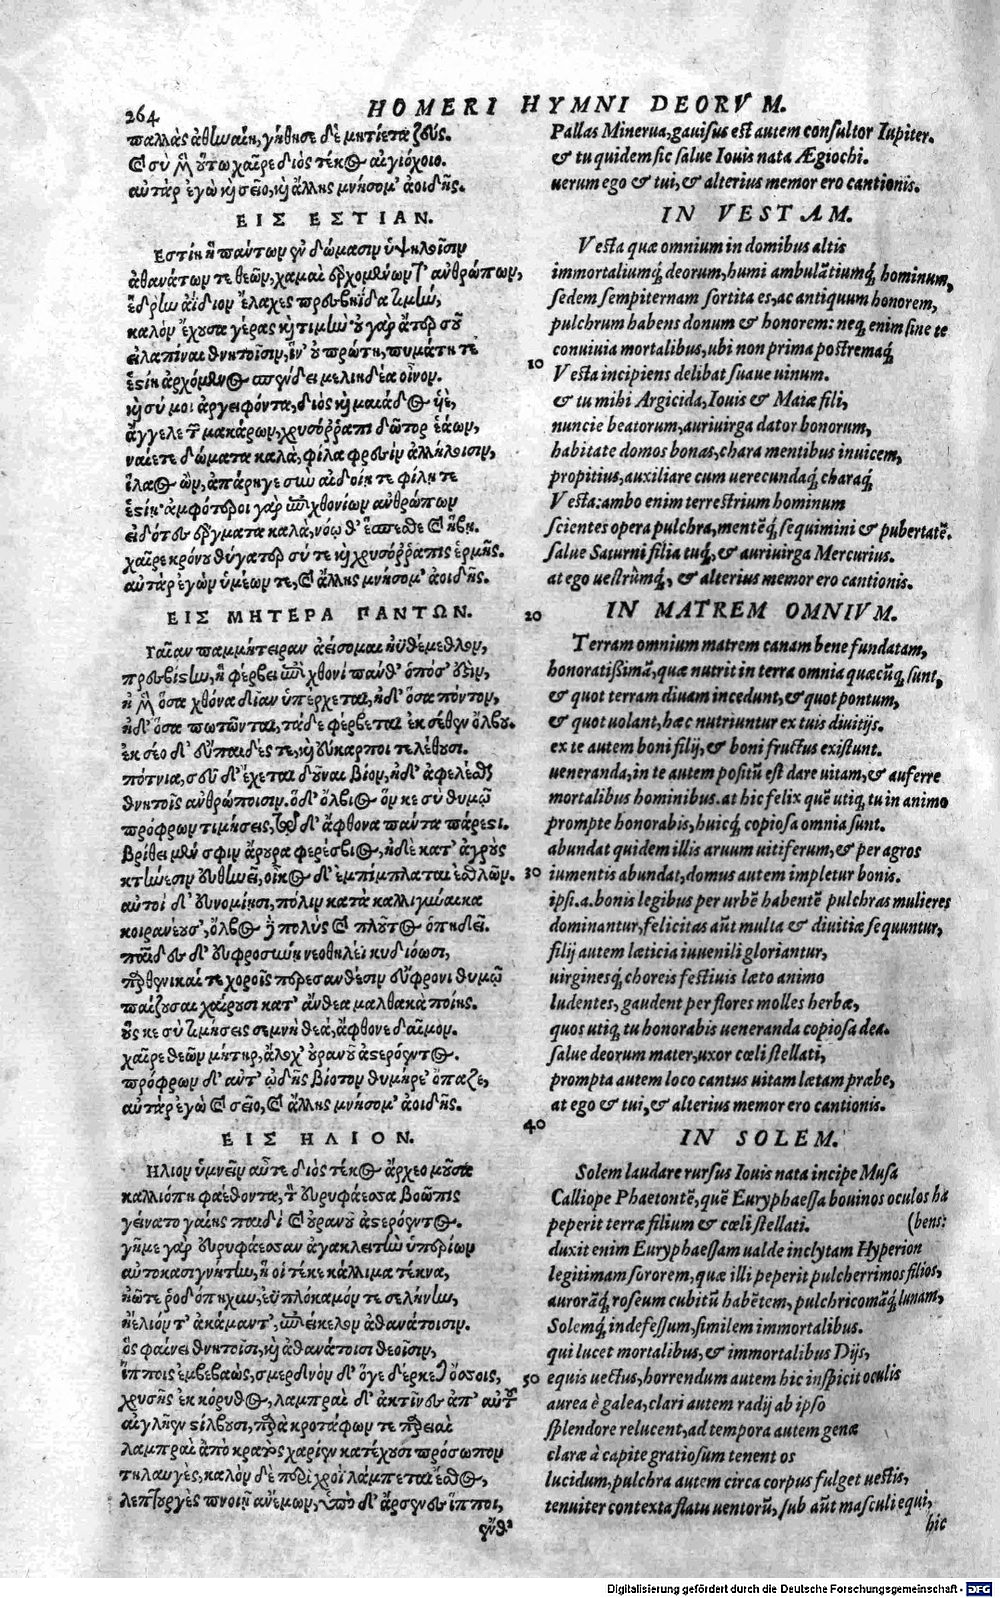 264 HOMERI HYMNI DEORVM.
παλλὰς ἀθηναίη, γήθησε δὲ μητίετα ζεύς.
καὶ σὺ μὲν οὕτω χαῖρε διὸς τέκος αἰγιόχοιο.
αὐτὰρ ἐγὼ καὶ σεῖο, καὶ ἄλλης μνήσομ' ἀοιδῆς.
ΕΙΣ ΕΣΤΙΑΝ.
Εστίη ἣ πάντων ἐν δώμασιν ὑψηλοῖσιν
ἀθανάτων τε θεῶν, χαμαὶ ἐρχομένων τ' ἀνθρώπων,
ἕδρην ἀΐδιον ἔλαχες πρεσβηΐδα τιμήν,
καλὸν ἔχουσα γέρας καὶ τιμήν· οὐ γὰρ ἄτερ σοῦ
εἰλαπίναι θνητοῖσιν, ἵν' οὐ πρώτη, πυμάτη τε
ἑστίη ἀρχόμενος σπένδει μελιηδέα οἶνον.
καὶ σύ μοι ἀργειφόντα, διὸς καὶ μαιάδος υἱὲ,
ἄγγελε τῶν μακάρων, χρυσόῤῥαπι δῶτορ ἑάων,
ναίετε δώματα καλὰ, φίλα φρεσὶν ἀλλήλοισιν,
ἵλαος ὢν, ἐπάρηγε σὺν αἰδοίη τε φίλη τε
ἑστίη· ἀμφότεροι γὰρ ἐπιχθονίων ἀνθρώπων
εἰδότες ἔργματα καλὰ, νόῳ θ' ἕσπεσθε καὶ ἥβῃ.
χαῖρε κρόνου θύγατερ σύ τε καὶ χρυσόῤῥαπις ἑρμῆς.
αὐτὰρ ἐγὼν ὑμέων τε, καὶ ἄλλης μνήσομ' ἀοιδῆς.
ΕΙΣ ΜΗΤΕΡΑ ΠΑΝΤΩΝ.
Γαῖαν παμμήτειραν ἀείσομαι ἠϋθέμεθλον,
πρεσβίστην, ἣ φέρβει ἐπὶ χθονὶ πάνθ' ὁπόσ' ἐστὶν,
ἠ μὲν ὅσα χθόνα δῖαν ὑπέρχεται, ἠδ' ὅσα πόντον,
ἠδ' ὅσα πωτῶνται, τάδε φέρβεται ἐκ σέθεν ὄλβου.
ἐκ σέο δ' εὔπαιδές τε, καὶ εὔκαρποι τελέθουσι.
πότνια, σεῦ δ' ἔχεται δοῦναι βίον, ἠδ' ἀφελέσθαι
θνητοῖς ἀνθρώποισιν. ὁ δ' ὄλβιος ὅν κε σὺ θυμῷ
πρόφρων τιμήσεις, τῷ δ' ἄφθονα πάντα πάρεστι.
βρίθει μέν σφιν ἄρουρα φερέσβιος, ἠδὲ κατ' ἀγροὺς
κτήνεσιν εὐθηνεῖ, οἶκος δ' ἐμπίμπλαται ἐσθλῶν.
αὐτοὶ δ' εὐνομίησι, πόλιν κατὰ καλλιγύναικα
κοιρανέουσ', ὄλβος δὲ πολὺς καὶ πλοῦτος ὀπηδεῖ.
παῖδες δ' εὐφροσύνη νεοθηλέϊ κυδιόωσι,
παρθενικαί τε χοροῖς περεσανθέσιν εὔφρονι θυμῷ
παίζουσαι χαίρουσι κατ' ἄνθεα μαλθακὰ ποίης.
οὕς κε σὺ τιμήσεις σεμνὴ θεά, ἄφθονε δαῖμον.
χαῖρε θεῶν μήτηρ, ἄλοχ' οὐρανοῦ ἀστερόεντος.
πρόφρων δ' αὐτ' ᾠδῆς βίοτον θυμήρε' ὄπαζε,
αὐτὰρ ἐγὼ καὶ σεῖο, καὶ ἄλλης μνήσομ' ἀοιδῆς.
ΕΙΣ ΗΛΙΟΝ.
Ηλιον ὑμνεῖν αὖτε διὸς τέκος ἄρχεο μοῦσα
καλλιόπη φαέθοντα, τὸν εὐρυφάεσσα βοῶπις
γείνατο γαίης παιδὶ καὶ οὐρανοῦ ἀστερόεντος.
γῆμε γὰρ εὐρυφάεσσαν ἀγακλειτὴν ὑπερίων
αὐτοκασιγνήτην, ἥ οἱ τέκε κάλλιμα τέκνα,
ἠῶτε ῥοδόπηχυν, ἐϋπλόκαμόν τε σελήνην,
ἠέλιόν τ' ἀκάμαντ', ἐπιείκελον ἀθανάτοισιν.
ὃς φαίνει θνητοῖσι, καὶ ἀθανάτοισι θεοῖσιν,
ἵπποις ἐμβεβαὼς, σμερδνὸν δ' ὅγε δέρκεται ὄσσοις,
χρυσῆς ἐκ κόρυθος, λαμπραὶ δ' ἀκτῖνες ἀπ' αὐτοῦ
αἰγλῆεν στίλβουσι, παρὰ κροτάφων τε παρειαὶ
λαμπραὶ ἀπὸ κρατὸς χαρίεν κατέχουσι πρόσωπον
τηλαυγὲς, καλὸν δὲ περὶ χροῒ λάμπεται ἔσθος,
λεπτουργὲς πνοιῇ ἀνέμων, ὑπὸ δ' ἄρσενες ἵπποι,
ἔνθ'
Pallas Minerua, gauisus est autem consultor Iupiter.
& tu quidem sic salue Iouis nata Ægiochi.
uerum ego & tui, & alterius memor ero cantionis.
IN VESTAM.
Vesta quæ omnium in domibus altis
immortaliumq; deorum, humi ambulātiumq; hominum,
sedem sempiternam sortita es, ac antiquum honorem,
pulchrum habens donum & honorem: neq; enim sine te
conuiuia mortalibus, ubi non prima postremaq;
10 Vesta incipiens delibat suaue uinum.
& tu mihi Argicida, Iouis & Maiæ fili,
nuncie beatorum, auriuirga dator bonorum,
habitate domos bonas, chara mentibus inuicem,
propitius, auxiliare cum uerecundaq; charaq;
Vesta: ambo enim terrestrium hominum
scientes opera pulchra, mentēq; sequimini & pubertatē.
salue Saturni filia tuq;, & auriuirga Mercurius.
at ego uestrûmq;, & alterius memor ero cantionis.
20 IN MATREM OMNIVM.
Terram omnium matrem canam bene fundatam,
honoratißimā, quæ nutrit in terra omnia quæcūq; sunt,
& quot terram diuam incedunt, & quot pontum,
& quot uolant, hæc nutriuntur ex tuis diuitijs.
ex te autem boni filij, & boni fructus existunt.
ueneranda, in te autem positū est dare uitam, & auferre
mortalibus hominibus. at hic felix quē utiq; tu in animo
prompte honorabis, huicq; copiosa omnia sunt.
abundat quidem illis aruum uitiferum, & per agros
30 iumentis abundat, domus autem impletur bonis.
ipsi .a. bonis legibus per urbē habentē pulchras mulieres
dominantur, felicitas aūt multa & diuitiæ sequuntur,
filij autem læticia iuuenili gloriantur,
uirginesq; choreis festiuis læto animo
ludentes, gaudent per flores molles herbæ,
quos utiq; tu honorabis ueneranda copiosa dea.
salue deorum mater, uxor cœli stellati,
prompta autem loco cantus uitam lætam præbe,
at ego & tui, & alterius memor ero cantionis.
40 IN SOLEM.
Solem laudare rursus Iouis nata incipe Musa
Calliope Phaetontē, quē Euryphaessa bouinos oculos ha
peperit terræ filium & cœli stellati. (bens:
duxit enim Euryphaessam ualde inclytam Hyperion
legitimam sororem, quæ illi peperit pulcherrimos filios,
aurorāq; roseum cubitū habētem, pulchricomāq; lunam,
Solemq; indefessum, similem immortalibus.
qui lucet mortalibus, & immortalibus Dijs,
50 equis uectus, horrendum autem hic inspicit oculis
aurea è galea, clari autem radij ab ipso
splendore relucent, ad tempora autem genæ
claræ à capite gratiosum tenent os
lucidum, pulchra autem circa corpus fulget uestis,
tenuiter contexta flatu uentorū, sub aūt masculi equi,
hic
Digitalisierung gefördert durch die Deutsche Forschungsgemeinschaft - DFG